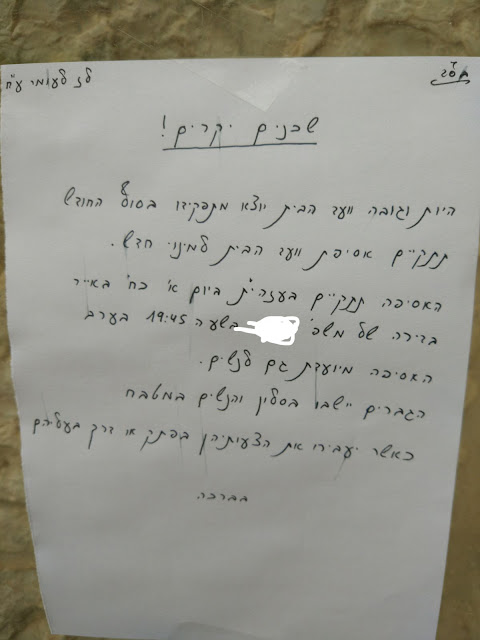 בס"ד
לז לעומר ע"ח
שכנים יקרים!
היות וגובה וועד הבית יוצא מתפקידו בסוף החודש
תתקיים אסיפת וועד הבית למינוי חדש.
האסיפה תתקיים בעזהי"ת ביום א' כח' באייר
בדירה של משפ' בשעה 19:45 בערב
האסיפה מיועדת גם לנשים.
הגברים יישבו בסלון והנשים במטבח
כאשר יעבירו את הצעותיהן בפתק או דרך בעליהם
בברכה